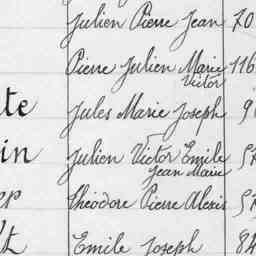 Julien Pierre Jean 70
Pierre Julien Marie 116
Victor
te Jules Marie Joseph
in Julien Victor Emile 57
Jean Marie
Théodore Pierre Alexis 57
Emile Joseph 84